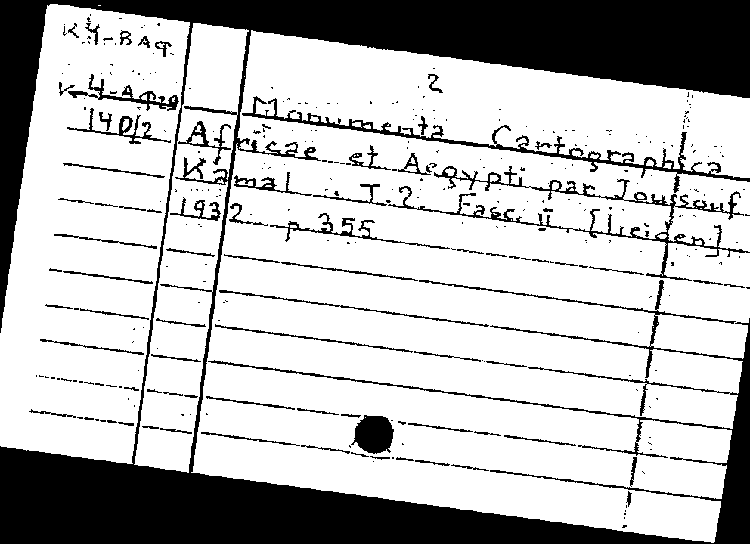 К 4-ВАФ
2
К 4-Афр
140/2
Monumenta Cartographica
Africae et Aegypti par Joussouf
Kamal. T.2. Fasc. II. [Leiden],
1932 p. 355